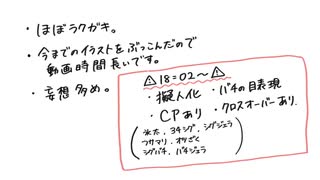 ・ほぼラクガキ。
・今までのイラストをぶっこんだので
動画時間長いです。
・妄想多め。
⚠18=02〜⚠
・擬人化 ・バチの目表現
・CPあり ・クロスオーバーあり.
氷太, 34シグ, シグジェラ
フサマリ, オワざく
シグバチ, バチジェラ